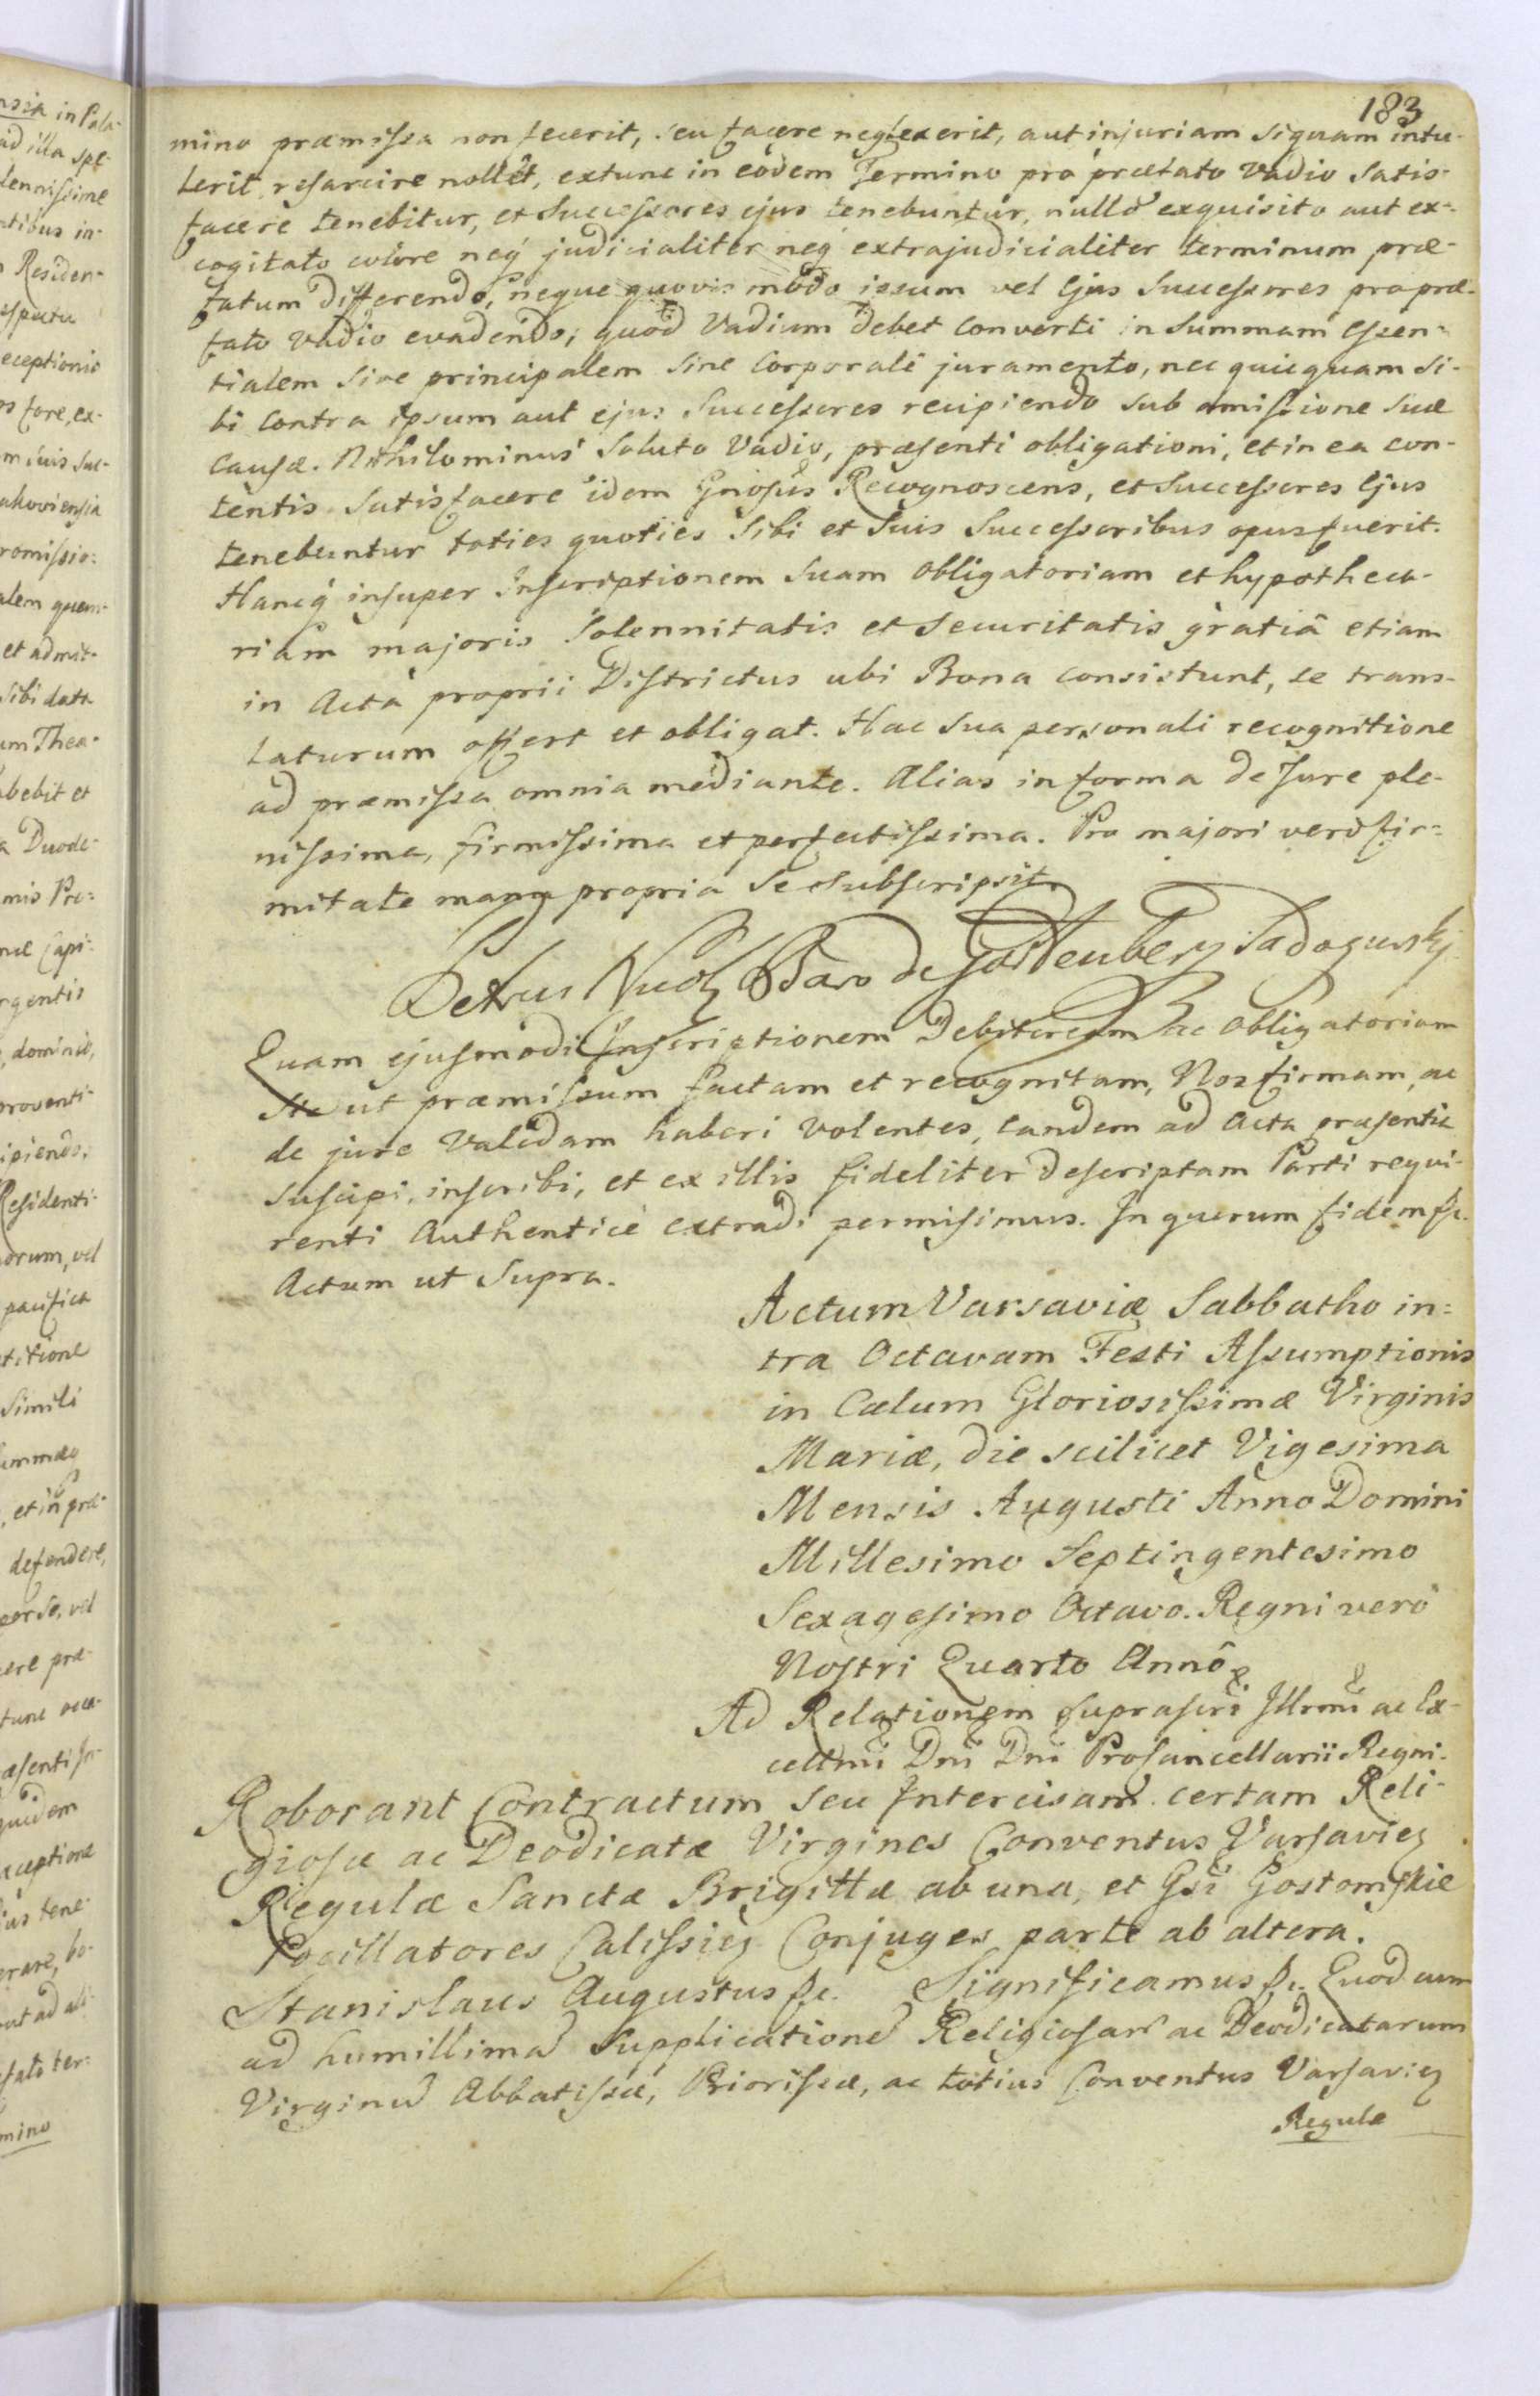 183
mino præmissa non fecerit, seu facere neglexerit, aut injuriam siquam intu-
lerit resarcire nollet, extunc in eodem Termino pro præfato Vadio Satis-
facere tenebitur, et Successores ejus tenebuntur, nullo exquisito aut ex-
cogitato colore neq́ judicialiter neq́ extrajudicialiter terminum præ-
fatum differendo, neque quovis modo ipsum vel Ejus Successores pro præ-
fato Vadio evadendo; quod Vadium debet converti in Summam Essen-
tialem sive principalem sine Corporali juramento, nec quicquam si-
bi contra ipsum aut ejus Successores recipiendo sub amissione suæ
Causæ. Nihilominus Soluto Vadio, præsenti obligationi, et in ea con-
tentis Satisfacere idem Gnosus Recognoscens, et Successores Ejus
tenebuntur toties quoties Sibi et Suis Successoribus opus fuerit.
Hancq́ insuper Inscriptionem Suam Obligatoriam et hypotheca-
riam majoris Solennitatis et Securitatis gratiâ etiam
in Acta proprii Districtus ubi Bona consistunt, se trans-
laturum offert et obligat. Hac Sua personali recognitione
ad præmissa omnia mediante. Alias in forma de Jure ple-
nissima, firmissima et perfectissima. Pro majori verò fir-
mitate manu propria Se subscripsit.
Petrus Baro de Sadogurskj
Quam ejusmodi Inscriptionem Debitoream ac Obligatoriam
ut præmissum factam et recognitam, Nos firmam, ac
de jure Validam haberi Volentes, eandem ad Acta præsentia
Suscipi, inscribi, et ex illis fideliter descriptam Parti requi-
renti Authenticè extradi permisimus. In quorum fidem &c.
Actum ut Supra.
Actum Varsaviæ Sabbatho in-
tra Octavam Festi Assumptionis
in Cælum Gloriosissimæ Virginis
Mariæ, die scilicet Vigesima
Mensis Augusti Anno Domini
Millesimo Septingentesimo
Sexagesimo Octavo. Regni verò
Nostri Quarto Annô
Ad Relationem suprascri Illrmi ac Ex-
cellmi Dni Dni Procancellarii Regni.
Roborant Contractum seu Intercisam certam Reli-
giosæ ac Deodicatæ Virgines Conventus Varsavien
Regulæ Sanctæ Brigittæ ab una, et Gsi Gostomskie
Pocillatores Calissien Conjuges parte ab altera.
Stanislaus Augustus &c. Significamus &c. Quod cum
ad humillimã Supplicationẽ Religiosarũ ac Deodicatarum
Virginũ Abbatissæ, Priorissæ, ac totius Conventus Varsavien
Regulæ